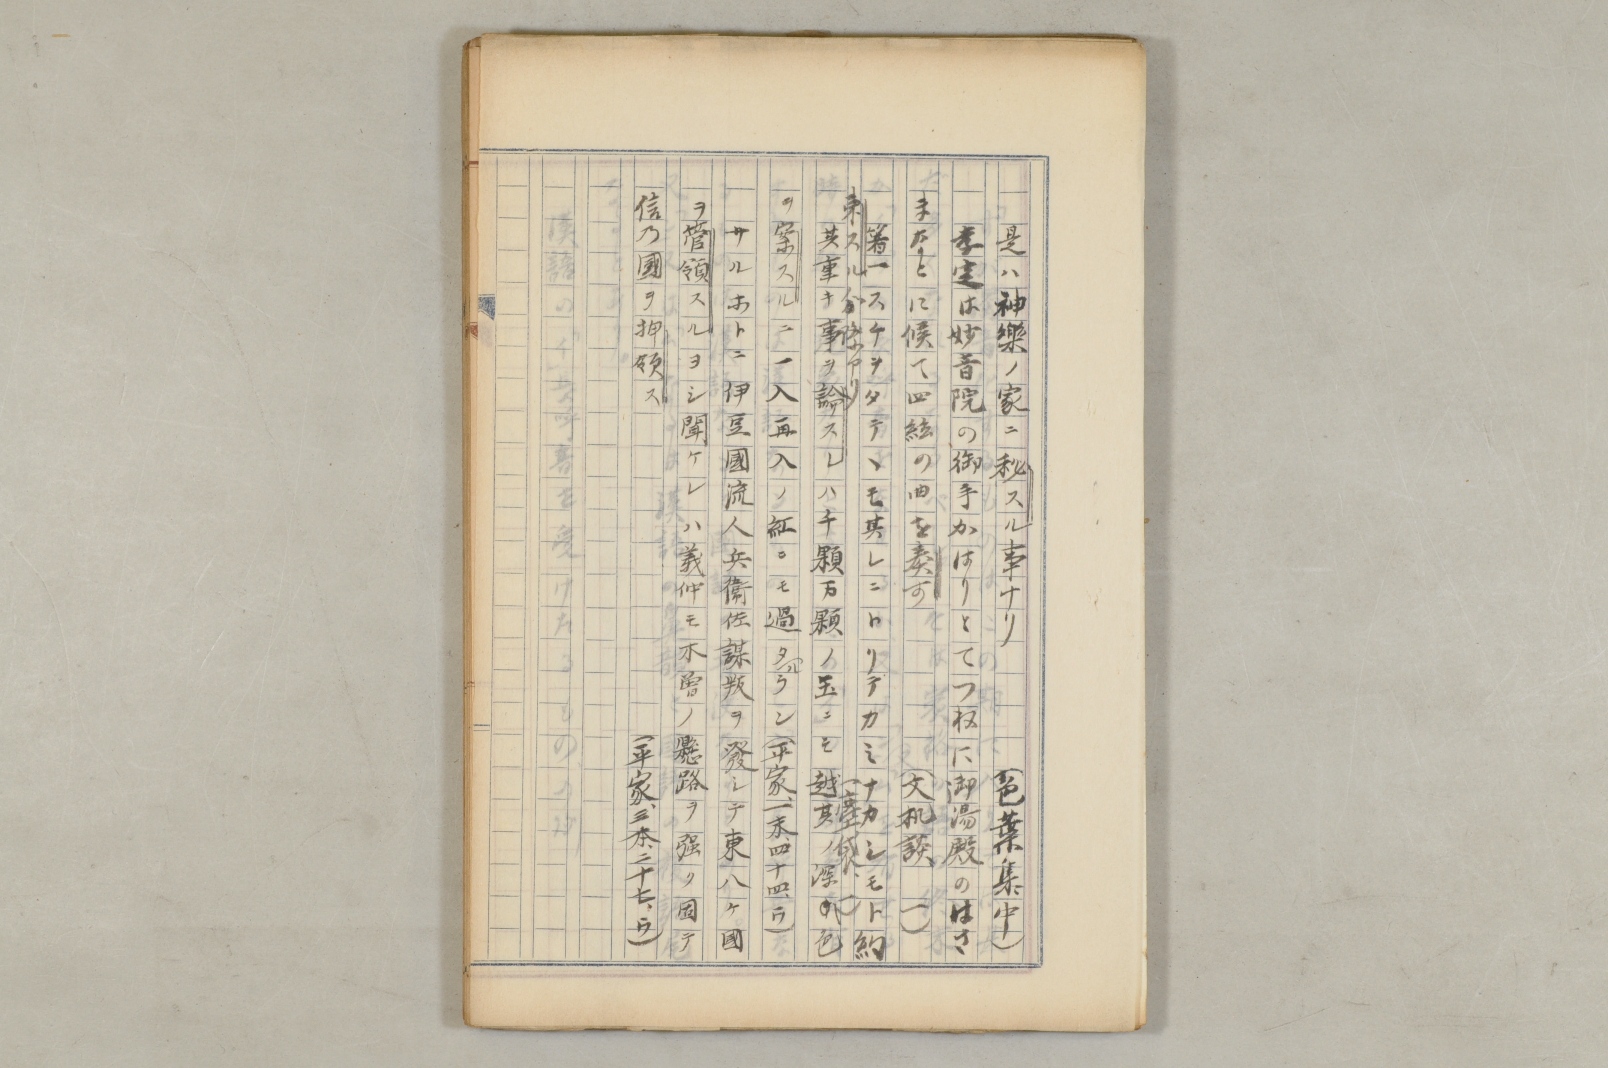 是ハ神樂ノ家ニ秘スル事ナリ
(色葉集中)
孝定は妙音院の御手かはりとてつねに御湯殿のはさ
まなとに候て四絃の曲を奏す
(文机談、一)
箸一スケヲタテヽモ其レニトリアカミナカシモト約
束スル分際アリ
(塵袋、)
其重キ事ヲ論スレハ千顆万顆ノ玉ニモ越其ノ深 色
ヲ案スルニ一入再入ノ紅ニモ過タラン
(平家、一末、四十四、ウ)
サルホトニ伊豆國流人兵衛佐謀叛ヲ發シテ東八ケ國
ヲ菅領スルヨシ聞ケレハ義仲モ木曽ノ懸路ヲ强ク固テ
信乃國ヲ押領ス
(平家、三本、二十七、ウ)